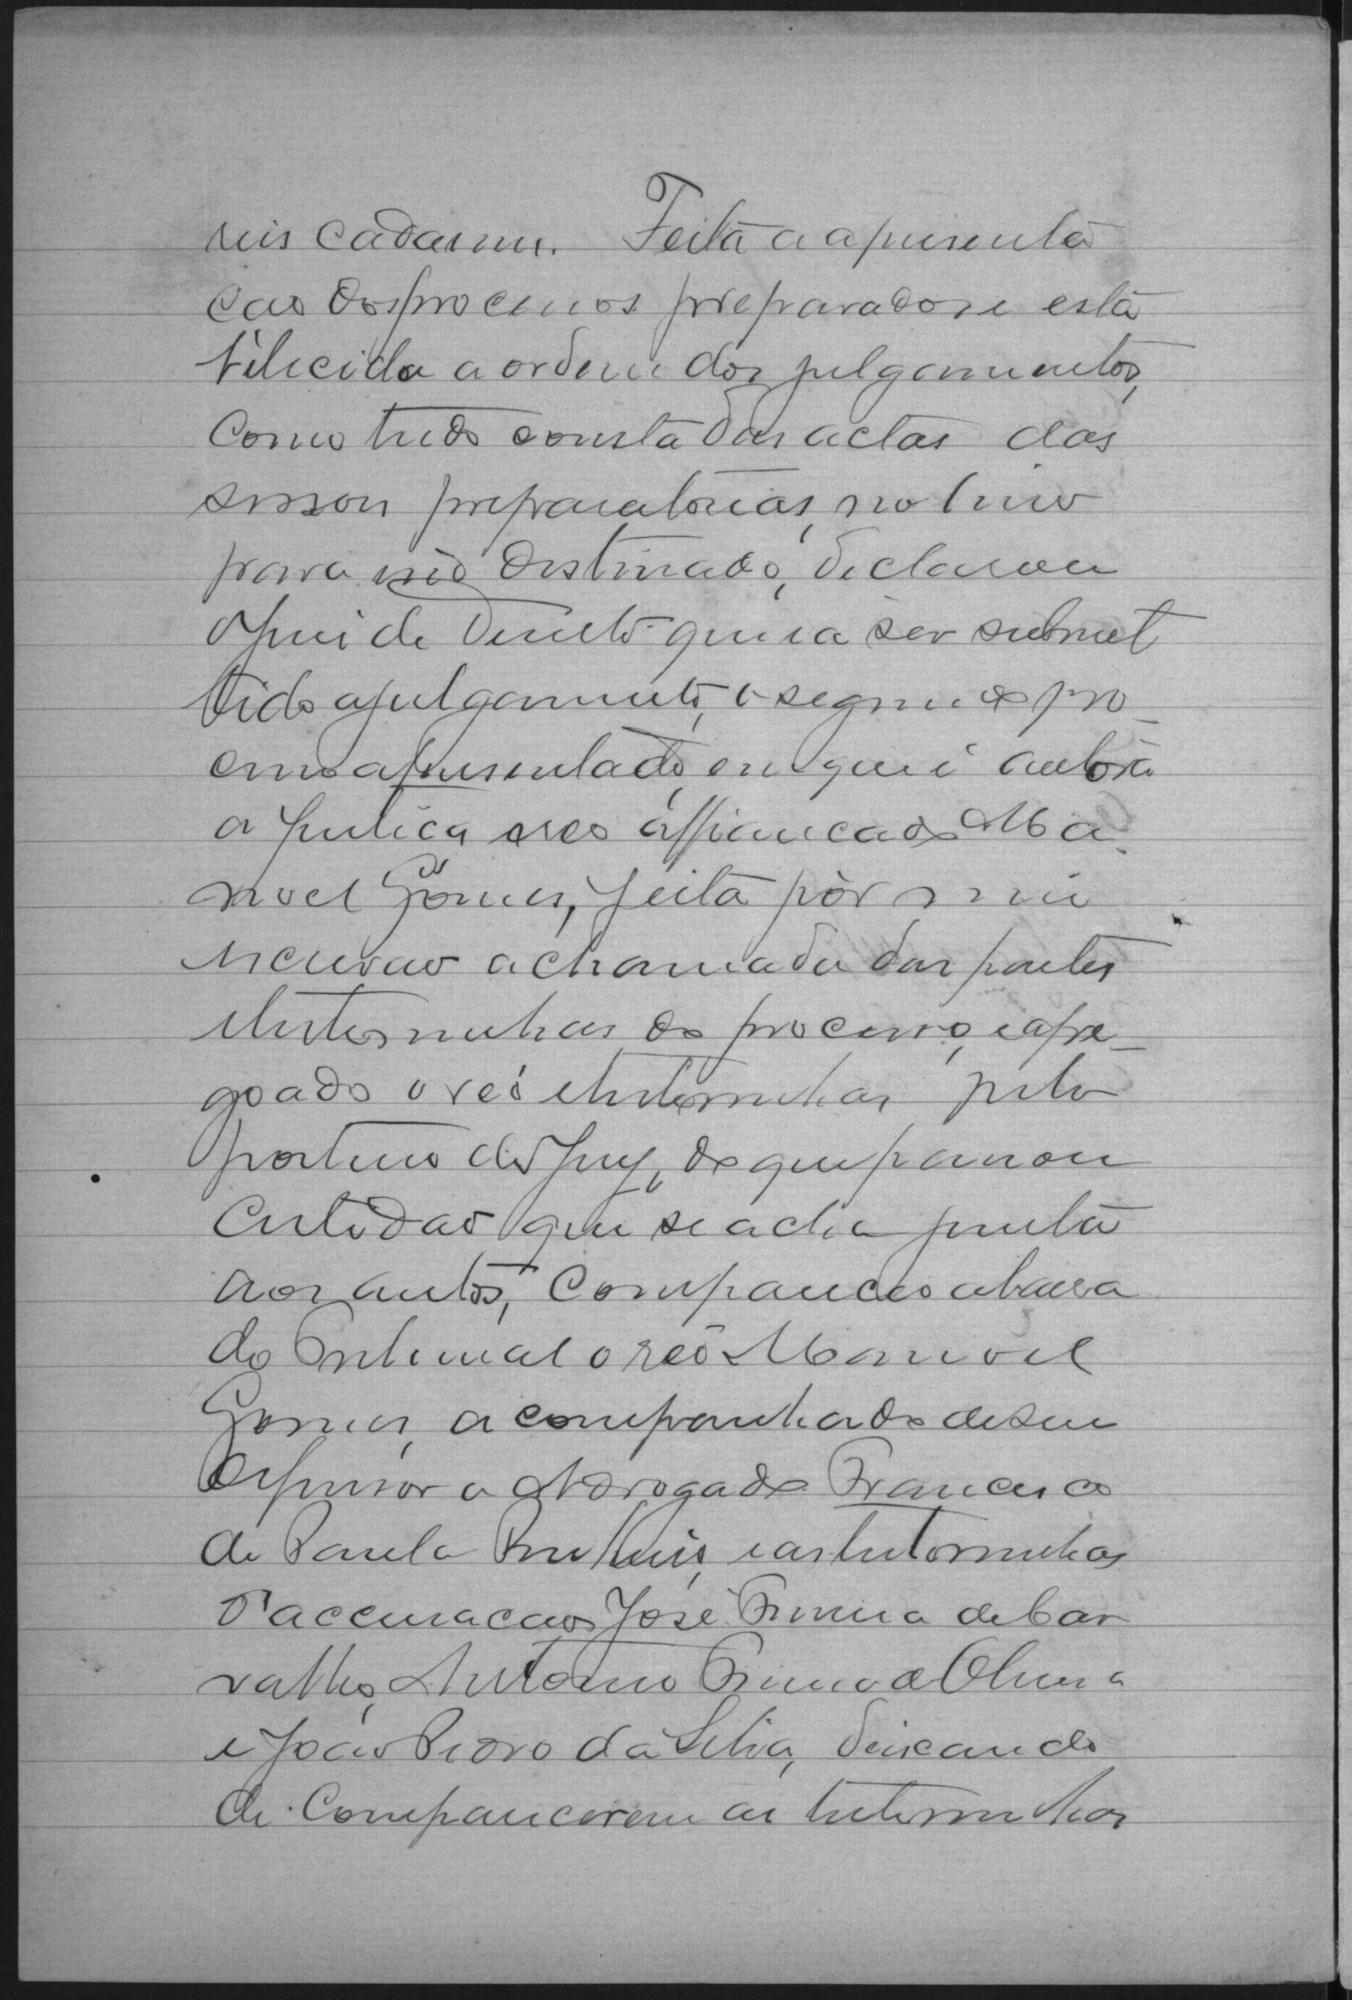 reis cada um. Feita a apresenta
ção dos processos preparados e esta
belecida a ordem dos julgamentos,
como tudo consta das actas das
sessões preparatorias, no livro
para isso destinado, declarou
o Juiz de Direito que ia ser submet
tido a julgamento, o segundo pro_
cesso apresentado, em que é autora
a Justiça e reo affiançado Ma
noel Gomes, feita por mim
escrivão a chamada das partes
e testemunhas do processo, e apre_
goado o reo e testemunhas pelo
porteiro do Jury, do que passou
certidão que se acha junta
aos autos, compareceo a barra
do Tribunal o reo Manoel
Gomes, acompanhado de seu
defensor o Advogado Francisco
de Paula e as testemunhas
d'accusação José Pereira de Car
valho, Antonio de Oliveira
e João Pedro da Silva, deixando
de comparecerem as testemunhas